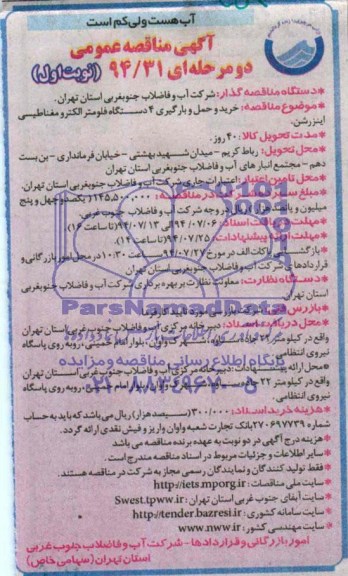 آب هست ولی کم است
آگهی مناقصه عمومی
دو مرحله ای ۹۴/۳۱ (نوبت اول)
* دستگاه مناقصه گذار: شرکت آب و فاضلاب جنوبغربی استان تهران.
* موضوع مناقصه: خرید و حمل و بارگیری ۴ دستگاه فلومتر الکترومغناطیسی
اینزرشن.
* مدت تحویل کالا: ۴۰ روز.
* محل تحویل: رباط کریم - میدان شهید بهشتی - خیابان فرمانداری - بن بست
دهم - مجتمع انبار های آب و فاضلاب جنوبغربی استان تهران
* محل تامین اعتبار: اعتبارات جاری شرکت آب و فاضلاب جنوبغربی استان تهران.
شرکت در مناقصه: ۱۴۵,۵۰۰,۰۰۰ (یکصد و چهل و پنج
میلیون و پانصد هزار) ریال در وجه شرکت آب و فاضلاب جنوب غربی.
* مهلت دریافت اسناد: ۹۴/۰۷/۰۶ الی ۹۴/۰۷/۱۳ (تا ساعت ۱۶)
* مهلت ارائه پیشنهادات: ۹۴/۰۷/۲۵ (تا ساعت ۱۲)
* بازگشایی پاکات الف در مورخ ۹۴/۰۷/۲۷ ساعت ۱۰:۳۰ در محل امور بازرگانی و
قراردادهای شرکت آب و فاضلاب جنوبغربی استان تهران
* دستگاه نظارت: معاونت نظارت بر بهره برداری شرکت آب و فاضلاب جنوبغربی
استان تهران
ParsNamadData
* محل دریافت اسناد: دبیرخانه مرکزی آب و فاضلاب جنوب غربی استان تهران
واقع در کیلومتر ۲۲ جاده بلوار امام خمینی، روبه روی پاسگاه
نیروی انتظامی.
پایگاه اطلاع رسانی مناقصه و مزایده
* محل ارائه پیشنهادات: دبیرخانه مرکزی آب و فاضلاب جنوب غربی استان تهران
۰۲۱-۸۸۳۴۹۶۷۰-۵
واقع در کیلومتر ۲۲ جاده امام خمینی، روبه روی پاسگاه
نیروی انتظامی.
* هزینه خرید اسناد: ۳۰۰/۰۰۰ (سیصد هزار) ریال می باشد که باید به حساب
شماره ۲۷۰۶۹۷۷۳۹ بانک تجارت شعبه واوان واریز و فیش نقدی ارائه گردد.
* هزینه درج آگهی در دو نوبت به عهده برنده مناقصه می باشد
* سایر اطلاعات و جزئیات مربوط در اسناد مناقصه مندرج است.
* فقط تولید کنندگان و نمایندگان رسمی مجاز به شرکت در مناقصه هستند.
* سایت ملی مناقصات: http://iets.mporg.ir
* سایت آبفای جنوب غربی استان تهران: Swest.tpww.ir
* سایت سامانه کشوری: http://tender.bazresi.ir
* سایت مهندسی کشور: www.nww.ir
امور بازرگانی و قراردادها - شرکت آب و فاضلاب جنوب غربی
استان تهران (سهامی خاص)